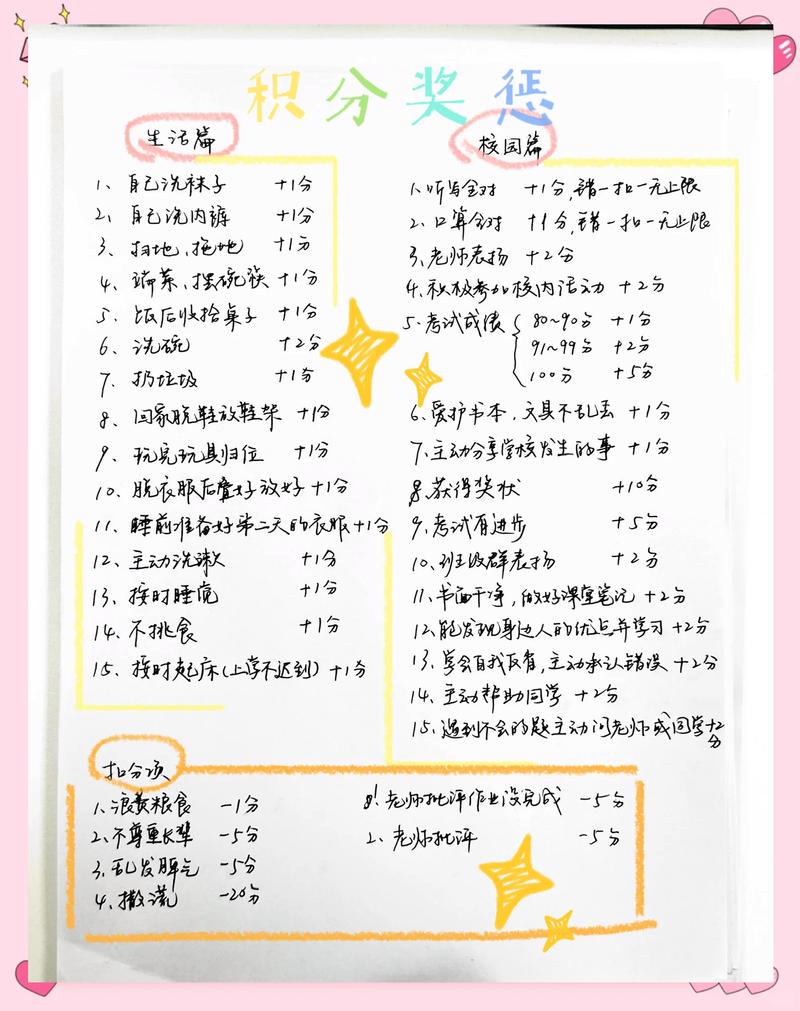 积分奖惩
生活篇
1、自己洗袜子 +1分
2、自己洗内裤 +1分
3、扫地、拖地 +1分
4、端菜、摆碗筷 +1分
5、饭后收拾桌子 +1分
6、洗碗 +2分
7、扔垃圾 +1分
8、回家脱鞋放鞋架 +1分
9、玩完玩具归位 +1分
10、脱衣服后叠好放好 +1分
11、睡前准备好第二天的衣服 +1分
12、主动洗漱 +1分
13、按时睡觉 +1分
14、不挑食 +1分
15、按时起床(上学不迟到) +1分
校园篇
1、听写全对 +1分,错一扣一无上限
2、口算全对 +1分,错一扣一无上限
3、老师表扬 +2分
4、积极参加校内活动 +2分
5、考试成绩 { 80~90分 +1分
91~99分 +2分
100分 +5分
6、爱护书本,文具不乱丢 +1分
7、主动分享学校发生的事 +1分
8、获得奖状 +10分
9、考试有进步 +5分
10、班级群表扬 +2分
11、书面干净,做好课堂笔记 +2分
12、能发现身边人的优点并学习 +2分
13、学会自我反省,主动承认错误 +2分
14、主动帮助同学 +2分
15、遇到不会的题主动问老师或同学 +2分
扣分项
1、浪费粮食 -1分
2、不尊重长辈 -5分
3、乱发脾气 -5分
4、撒谎 -20分
老师批评作业没完成 -5分
2、老师批评 -5分